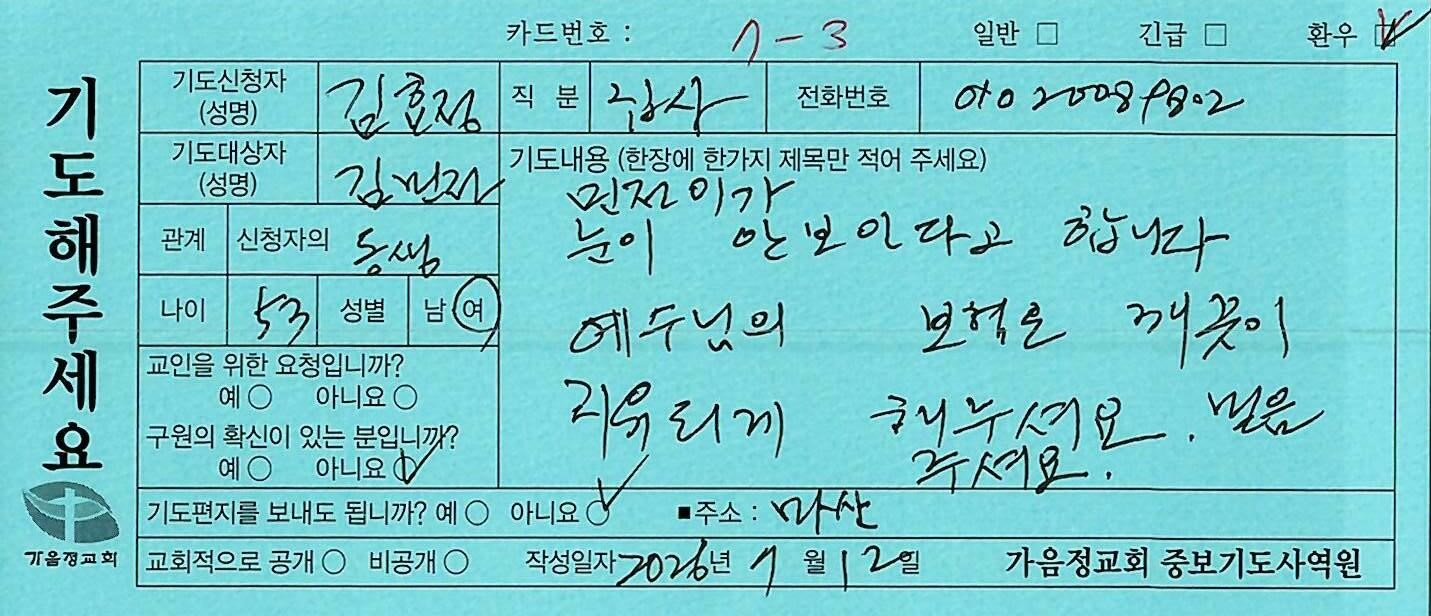 카드번호 : 7-3 일반 □ 긴급 □ 환우 ☑
기도해주세요
기도신청자 (성명) 김효정 직 분 집사 전화번호
기도대상자 (성명) 김민자
기도내용 (한장에 한가지 제목만 적어 주세요)
관계 신청자의 동생
나이 53 성별 남 여
눈이 안보인다고 합니다
예수님의 보혈로 깨끗이
치유되게 해주셔요. 믿음
주셔요.
교인을 위한 요청입니까?
예 ○ 아니요 ○
구원의 확신이 있는 분입니까?
예 ○ 아니요 ○
기도편지를 보내도 됩니까? 예 ○ 아니요 ○ ■주소 : 마산
교회적으로 공개 ○ 비공개 ○ 작성일자 2026년 7월 12일 가음정교회 중보기도사역원
가음정교회